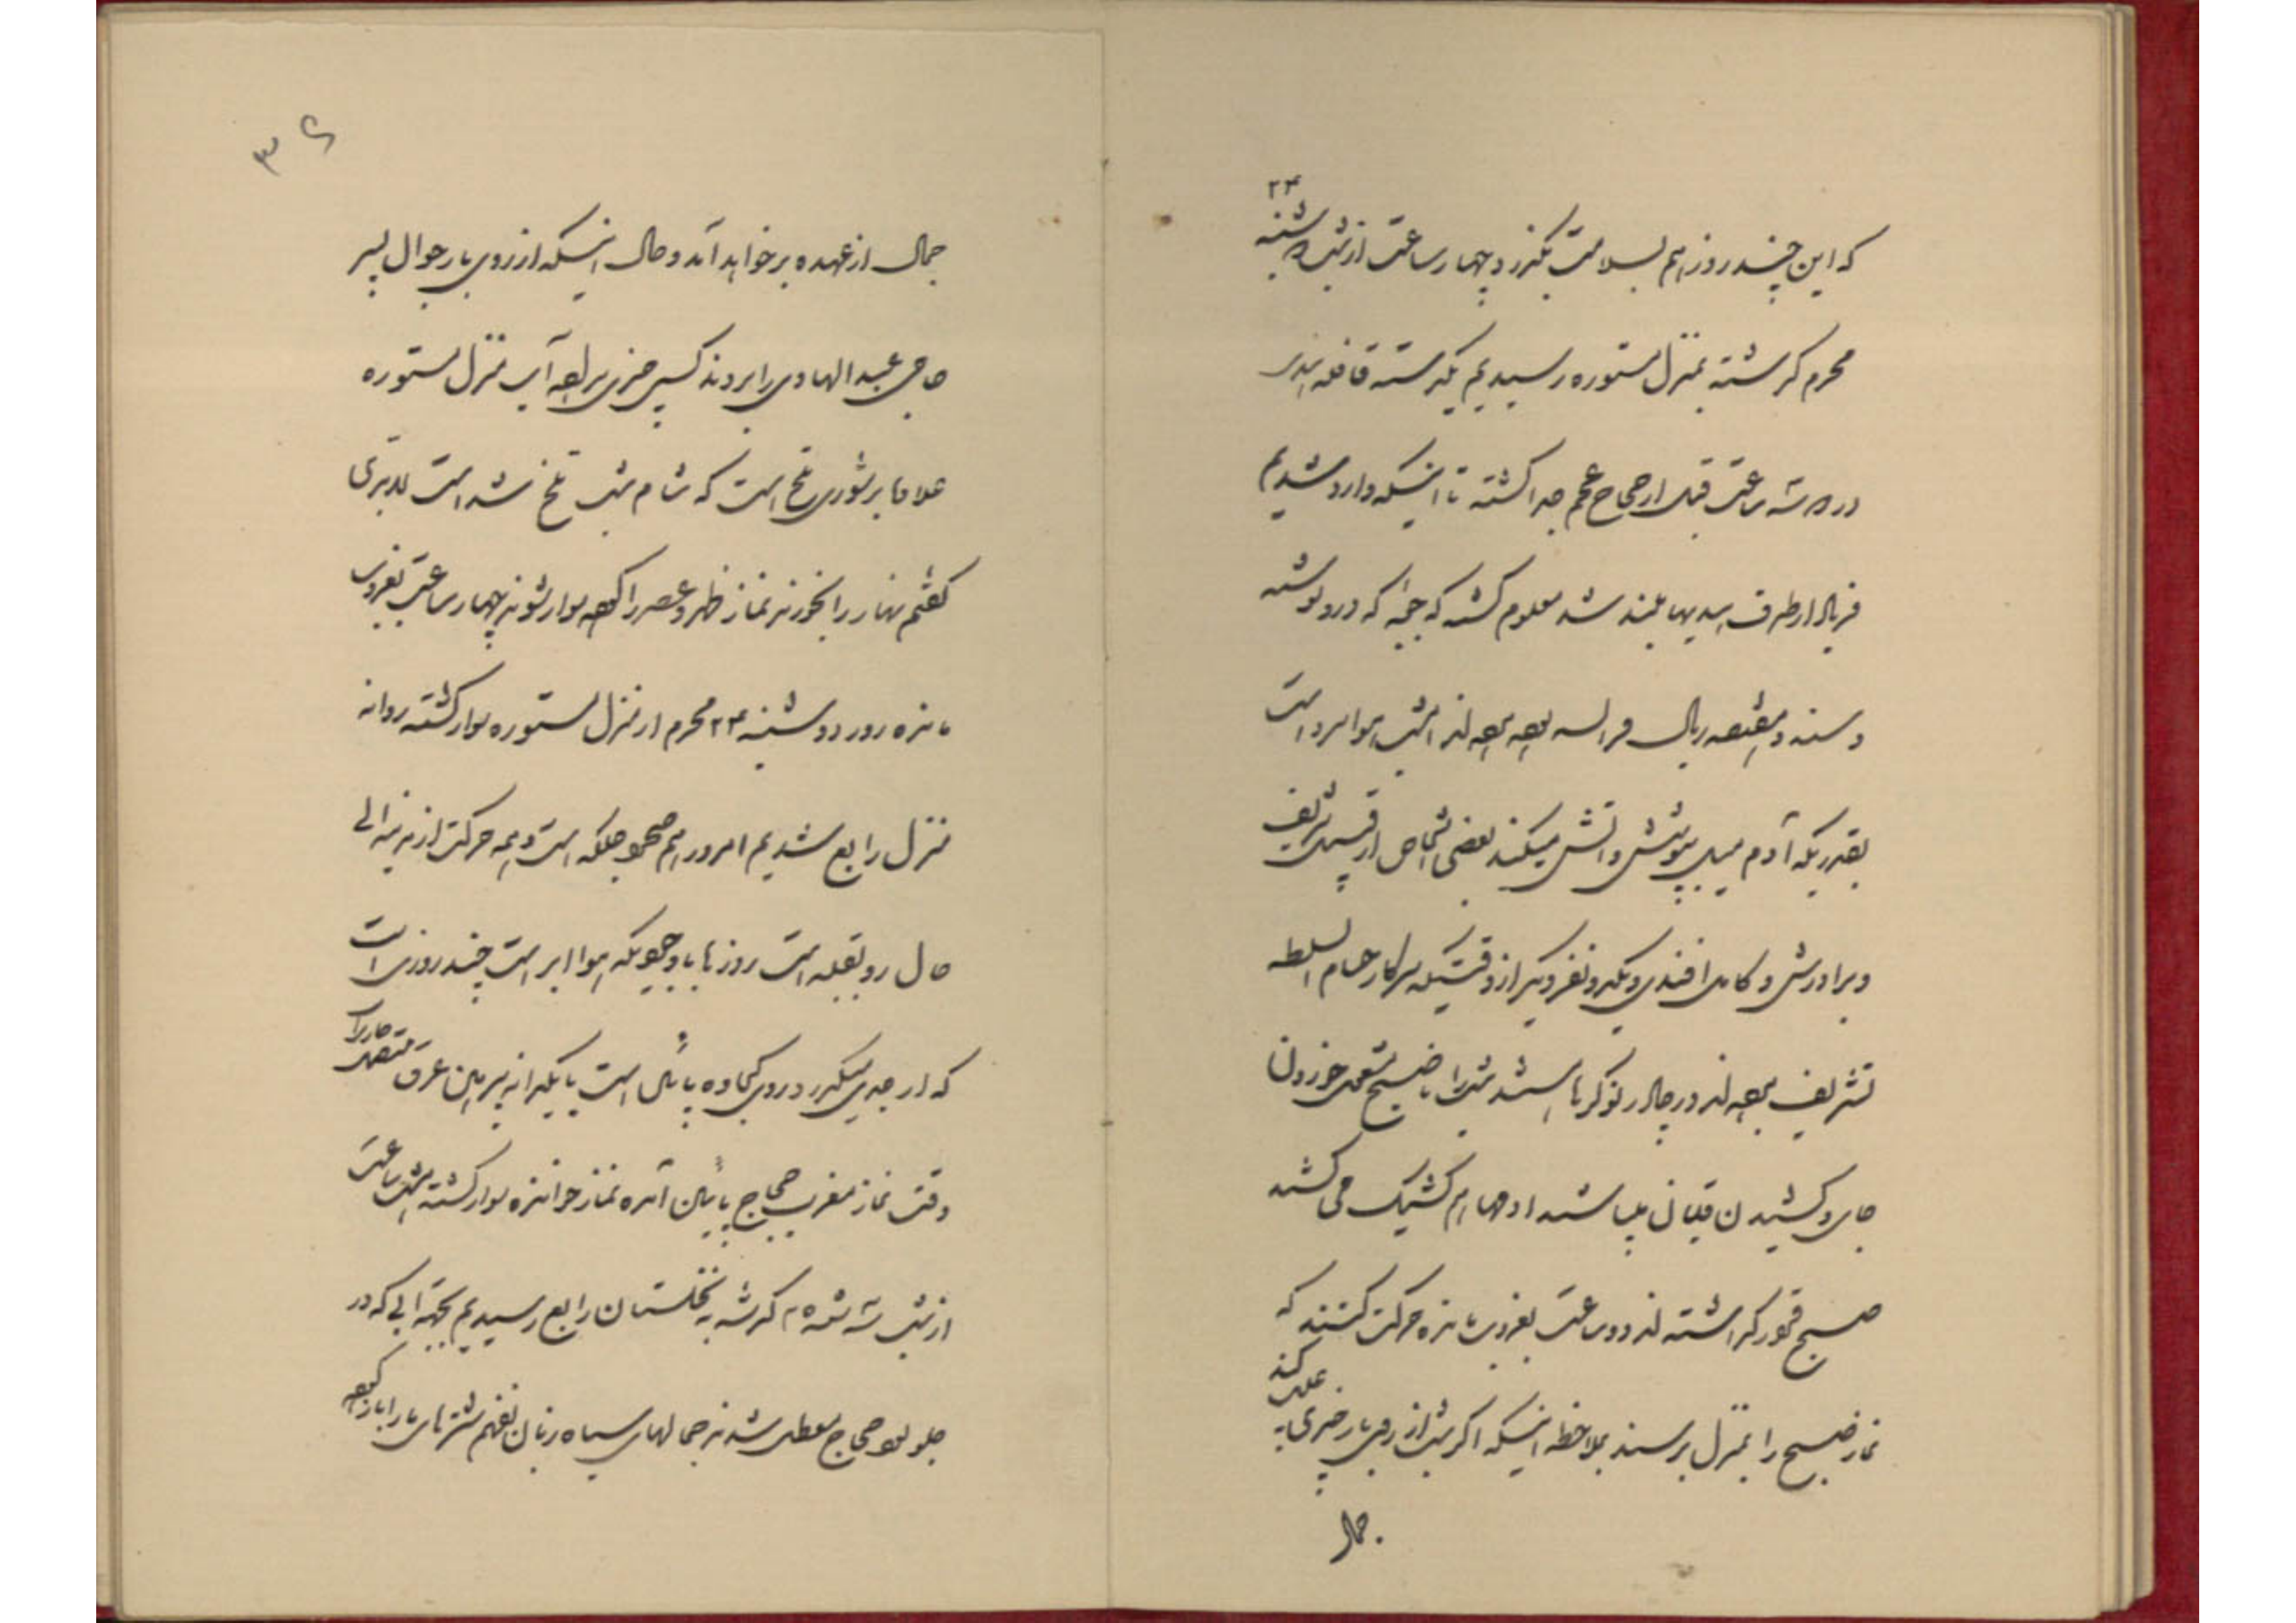 ۲۴
که این چند روز هم بسلامت بگذرد چهار ساعت از شب دوشنبه
محرم گذشته بمنزل مستوره رسیدیم یکدسته قافله بندر
در سه ساعت قبل از حجاج عجم جدا گشته تا اینکه وارد شدیم
فریاد از طرف بلند شد معلوم گشت که که در او
ریال فرانسه بوده امشب هوا سرد است
بقدریکه آدم میل بپوشش و آتش میکند بعضی اشخاص از قبیل شریف
و برادرش و کامل افندی و یکدو نفر دیگر از وقتیکه سرکار حسام السلطنه
تشریف در چادر نوکرها هستند شب را تا صبح مشغول خوردن
چای و کشیدن قلیان میباشند هم کشیک می کشند
صبح قورق گذاشته اند دو ساعت بغروب مانده حرکت کنند که
نماز صبح را بمنزل برسند بملاحظه اینکه اگر شب از روی بار چیزی بیفتد
جمال
۳۶
جمال از عهده برخواهد آمد و حال اینکه از روی بار جوال پسر
حاجی عبدالهادی را بردند کسی چیزی آب منزل مستوره
علاوه بر شوری تلخ است که شام شب تلخ شده است
گفتم نهار را بخورند نماز ظهر و عصر را کرده سوار شوند چهار ساعت بغروب
مانده روز دوشنبه ۲۴ محرم از منزل مستوره سوار گشته روانه
منزل رابع شدیم امروز هم صحرا جلگه است همه حرکت از مدینه الی
حال رو بقبله است روزها با وجودیکه هوا ابر است چند روزی است
که از جدی میگذرد در روی کجاوه پائین است با یکدانه پیراهن عرق متصل جاریست
وقت نماز مغرب حجاج پائین آمده نماز خوانده سوار گشته هشت ساعت
از شب سه شنبه ۲۵ گذشته به نخلستان رابع رسیدیم بجهة آبی که در
جلو بود حجاج معطل شدند جمالهای سیاه زبان نفهم شترهای ما را باز کرده